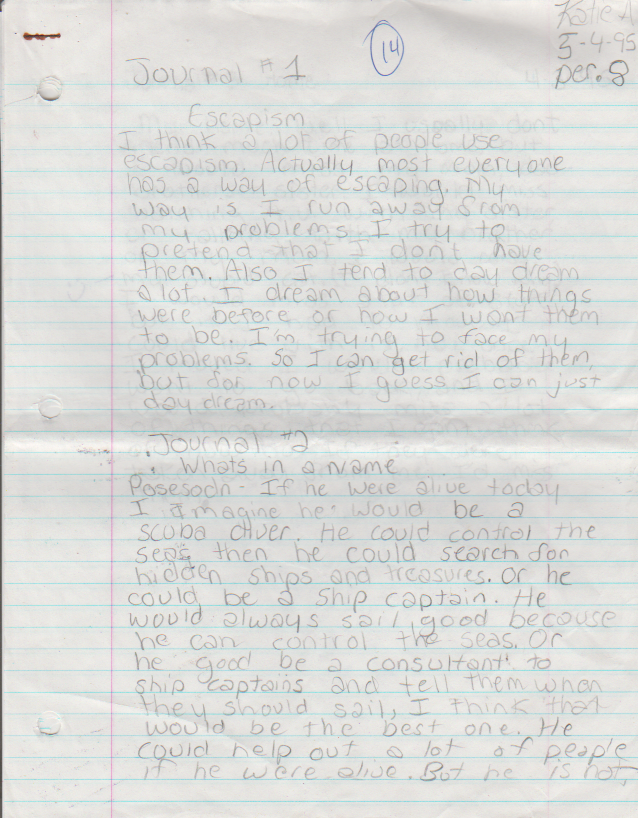 Katie A
14
5-4-95
Journal #1
per. 8
Escapism
I think a lot of people use
escapism. Actually most everyone
has a way of escaping. My
way is I run away from
my problems. I try to
pretend that I don't have
them. Also I tend to day dream
a lot. I dream about how things
were before or how I want them
to be. I'm trying to face my
problems. So I can get rid of them,
but for now I guess I can just
day dream.
Journal #2
Whats in a Name
Posesodn - If he were alive today
I imagine he would be a
scuba diver. He could control the
seas then he could search for
hidden ships and treasures. Or he
could be a ship captain. He
would always sail good because
he can control the seas. Or
he good be a consultant to
ship captains and tell them when
they should sail, I think that
would be the best one. He
could help out a lot of people
if he were alive. But he is not,